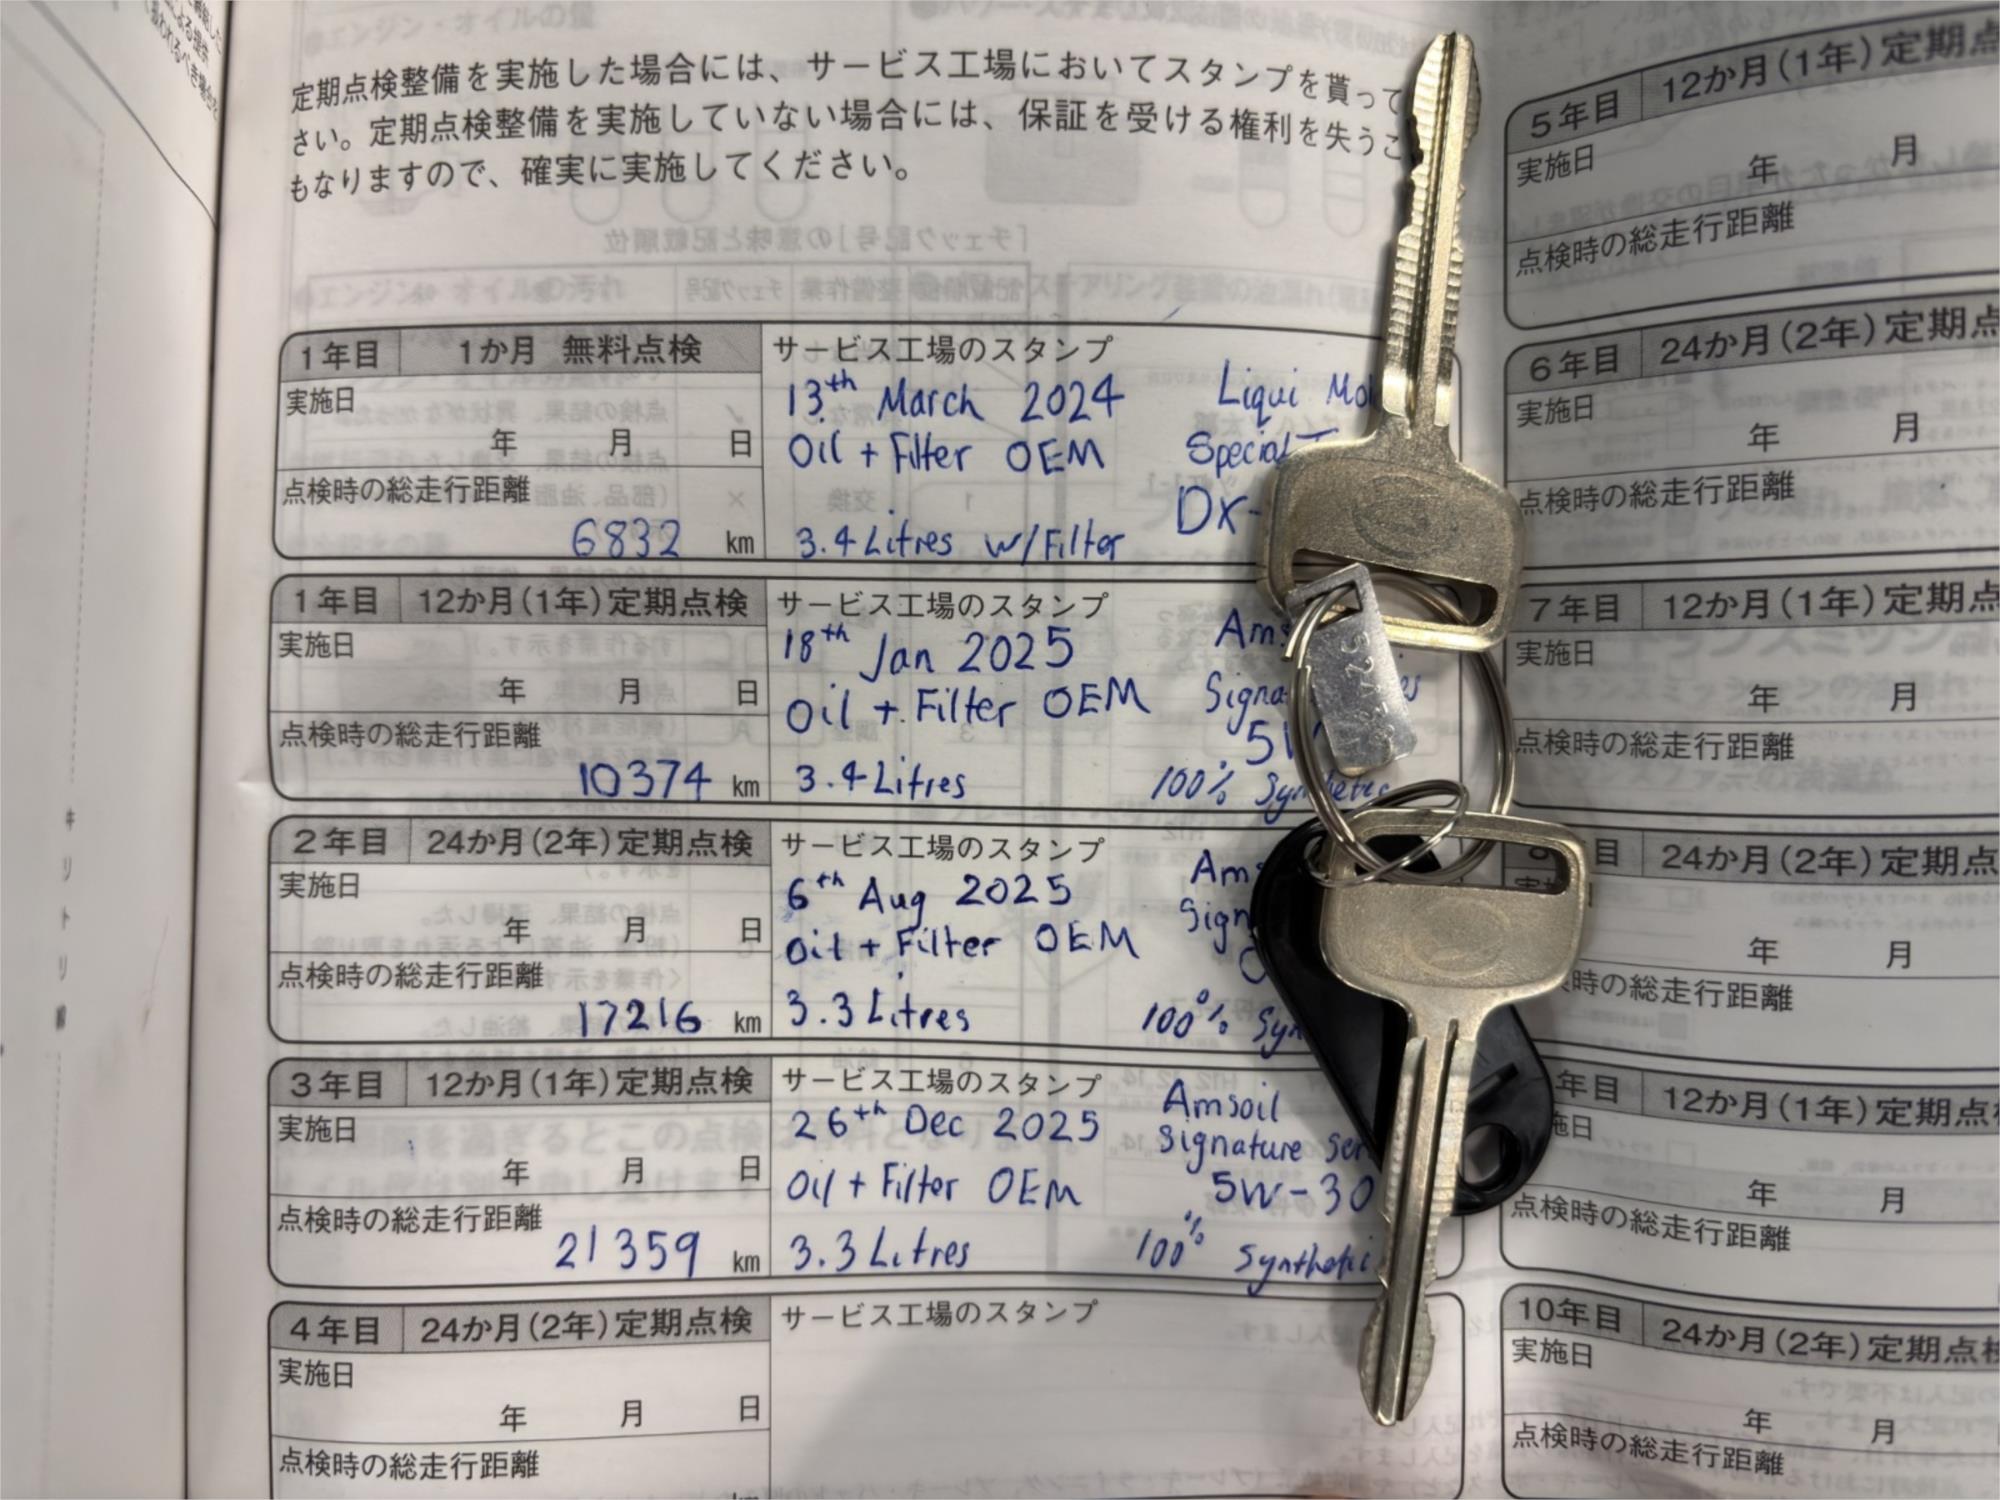 定期点検整備を実施した場合には、サービス工場においてスタンプを貰って
さい。定期点検整備を実施していない場合には、保証を受ける権利を失うこ
もなりますので、確実に実施してください。
1年目 1か月 無料点検
サービス工場のスタンプ
実施日
年 月 日
点検時の総走行距離
6832 km
13th March 2024
Oil + Filter OEM
3.4 Litres w/Filter
Liqui
Special
DX-
1年目 12か月(1年)定期点検
サービス工場のスタンプ
実施日
年 月 日
点検時の総走行距離
10374 km
18th Jan 2025
Oil + Filter OEM
3.4 Litres
100% Synthetic
2年目 24か月(2年)定期点検
サービス工場のスタンプ
実施日
年 月 日
点検時の総走行距離
17216 km
6th Aug 2025
Oil + Filter OEM
3.3 Litres
100%
3年目 12か月(1年)定期点検
サービス工場のスタンプ
実施日
年 月 日
点検時の総走行距離
21359 km
26th Dec 2025
Oil + Filter OEM
3.3 Litres
Amsoil
Signature
5W-30
100% Synthetic
4年目 24か月(2年)定期点検
サービス工場のスタンプ
実施日
年 月 日
点検時の総走行距離
5年目 12か月(1年)定期点
実施日
年 月
点検時の総走行距離
6年目 24か月(2年)定期点
実施日
年 月
点検時の総走行距離
7年目 12か月(1年)定期点
実施日
年 月
点検時の総走行距離
目 24か月(2年)定期点
年 月
検時の総走行距離
年目 12か月(1年)定期点
施日
年 月
点検時の総走行距離
10年目 24か月(2年)定期点検
実施日
年 月
点検時の総走行距離
キリトリ線